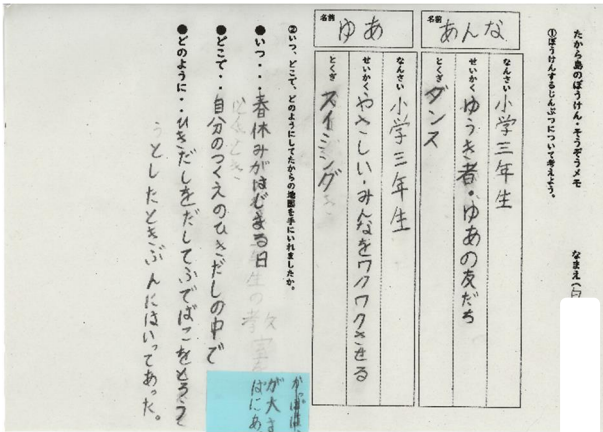 たから島のぼうけん・そうぞうメモ
なまえ(
①ぼうけんするじんぶつについて考えよう。
名前 あんな
なんさい 小学三年生
せいかく ゆうき者・ゆあの友だち
とくぎ ダンス
名前 ゆあ
なんさい 小学三年生
せいかく やさしい・みんなをワクワクさせる
とくぎ スイミング
②いつ、どこで、どのようにしてたからの地図を手にいれましたか。
●いつ・・・春休みがはじまる日
●どこで・・自分のつくえのひきだしの中で
●どのように・・ひきだしをだしてふでばこをとろう
うとしたときぶんにはいってあった。
が大き
ばにあ